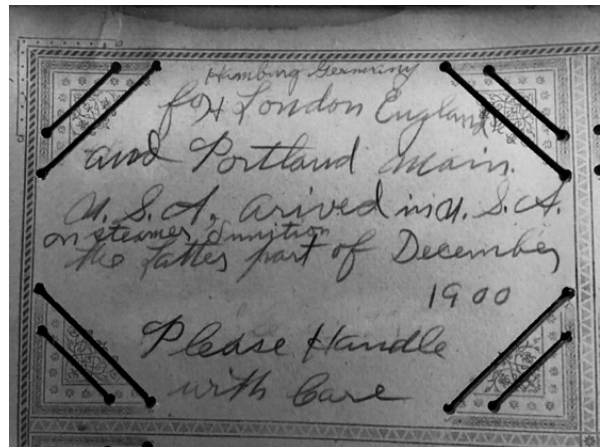 Hamburg Germany
for London England
and Portland main.
U. S. A. arived in U. S. A.
on steamer
the latter part of December
1900
Please Handle
with Care